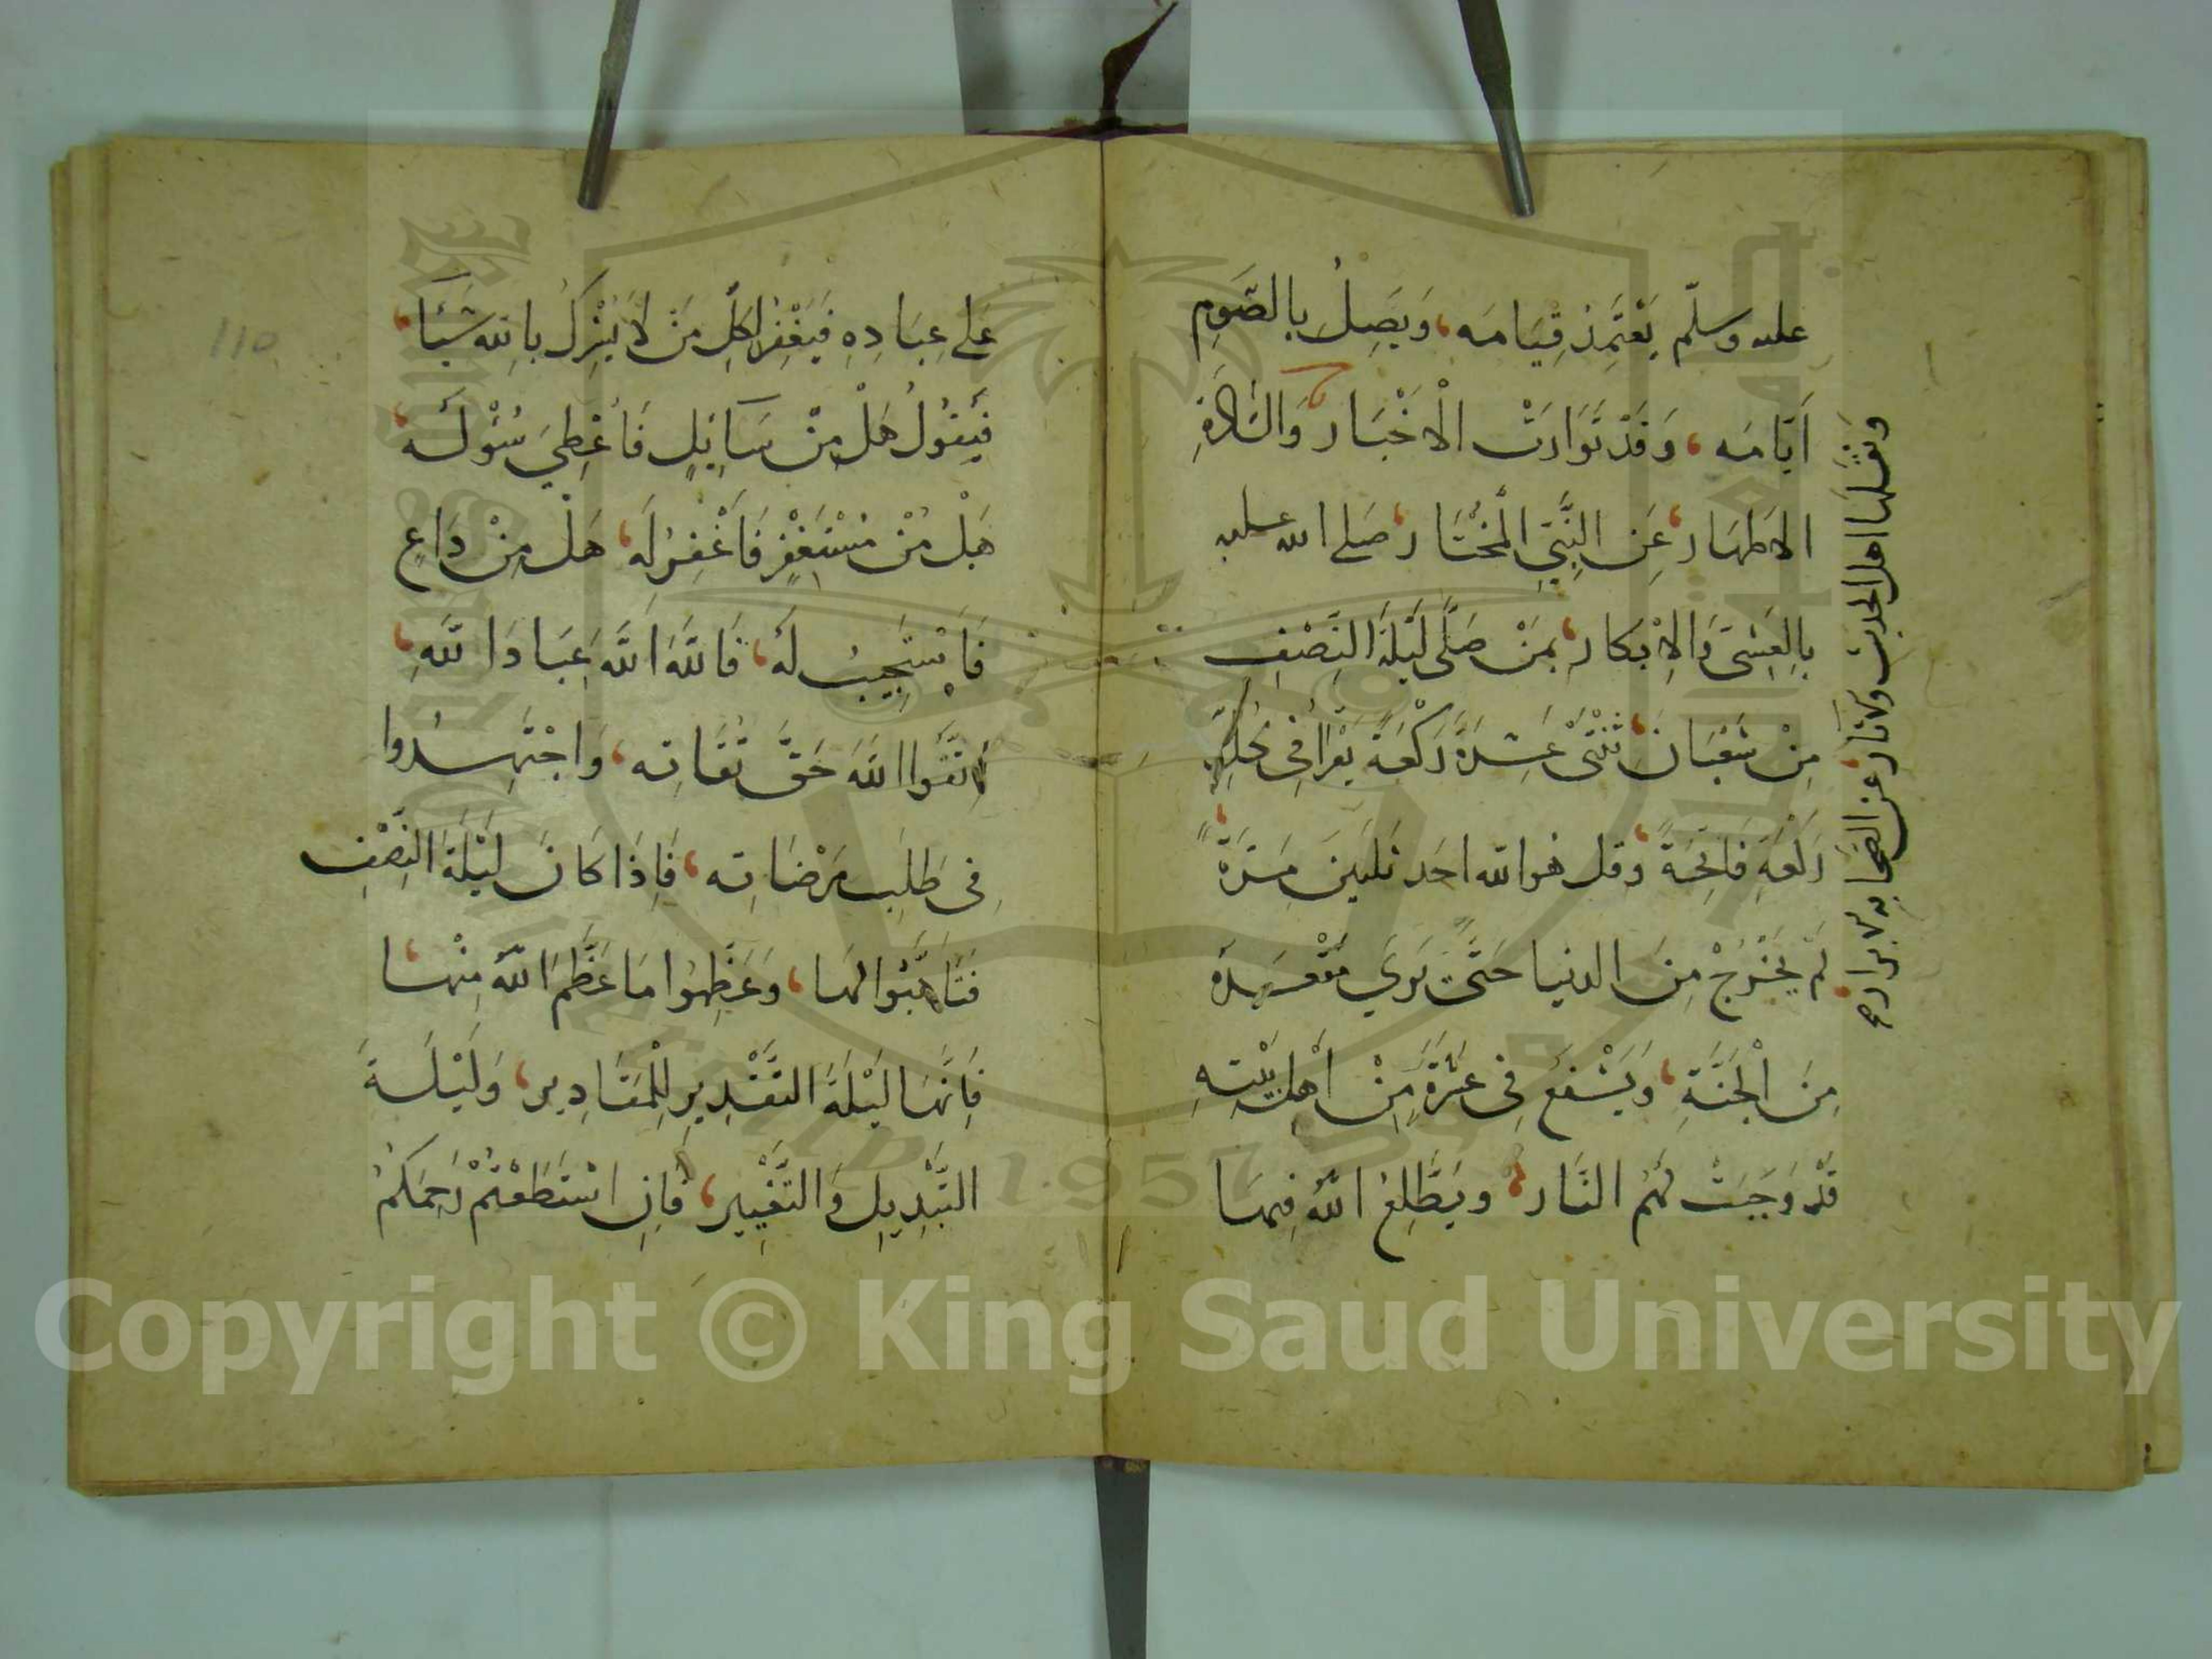 عليه وسلّم يَعْتَمِدُ قِيَامَه، وَيَصِلُ بِالصَّوْمِ
اَيَّامَه، وَقَدْ تَوَارَدَتْ الْاَخْبَار وَالسَّادَةِ
الاَطهَار، عَنِ النَّبِيِّ الْمُخْتَار، صَلى الله عليه
بِالعَشِىّ وَالاِبْكَار، بِمَنْ صَلَّى لَيْلَةَ النِّصْفِ
مِنْ شَعْبَانَ، ثِنْتَىْ عَشِرَةَ رَكْعَةً يَقْرَأُ فِى كُلِّ
رَكْعَةٍ فَاتِحَةً، وقل هو الله احد ثلثينَ مَرَّةً،
لَمْ يَخْرُجْ مِنَ الدنيا حَتَّى يَرَي مَقْعَدَهُ
مِنَ الْجَنَّةِ، وَيَشْفَعُ فِى عَشَرَةٍ مِنْ اَهْلِ بَيْتِهِ
قَدْ وَجَبَتْ لَهُمُ النَّار، ويَطَّلِعُ اللهُ فِيهَا
وَنقلها اهل الحديث والاثار، عن الصحابه الابرار، صح
عَلى عِبَادِهِ فَيَغْفِرُ لِكُلِّ مَنْ لَا يُشْرِكُ بِاللهِ شَيْئًا،
فَيَقُولُ هَلْ مِنْ سَآئِلٍ فَاُعْطِيَ سُئْولَه،
هَلْ مِنْ مُسْتَغْفِرٍ فَاَغْفِرُ لَه، هَلْ مِنْ دَاعٍ
فَاَسْتَجِيبُ لَهُ، فَاللَّهَ اللَّهَ عِبَادَ اللَّهِ،
اِتَّقُوا اللَّهَ حَقَّ تُقَاتِه، وَاجْتَهِدُوا
فِى طَلَبِ مَرْضَاتِه، فَاِذَا كَانَ لَيْلَةَ النِّصْفِ
فَتَاَهَّبُوا لهَا، وَعَظِّمُوا مَا عَظَّمَ اللَّهُ مِنْهَا،
فَاِنَّهَا لَيْلَةُ التَّقْدِيرِ لِلْمَقَادِير، وَلَيْلَةُ
التَّبْدِيلِ وَالتَّغْيِير، فَاِنِ اسْتَطَعْتُمْ رَحِمَكُمُ
110
Copyright © King Saud University
1957